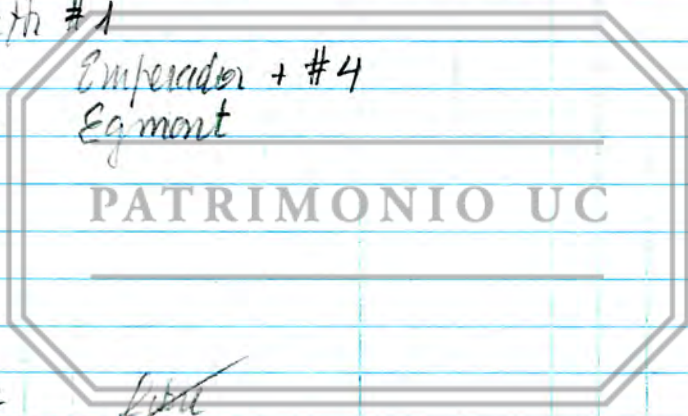 th #1
Emperador + #4
Egmont
PATRIMONIO UC